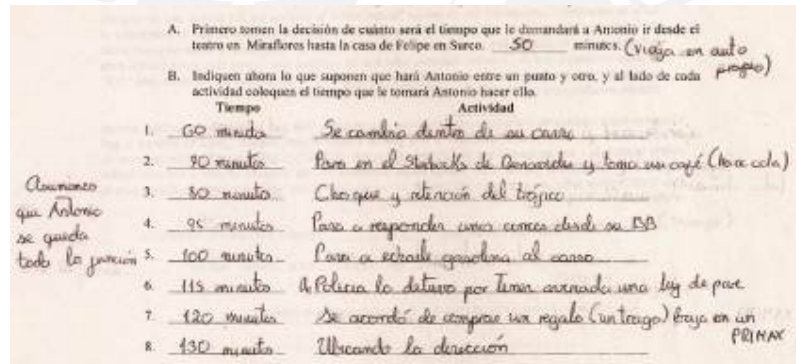 A. Primero tomen la decisión de cuánto será el tiempo que le demandará a Antonio ir desde el
teatro en Miraflores hasta la casa de Felipe en Surco. 50 minutos. (viaja en auto
propio)
B. Indiquen ahora lo que suponen que hará Antonio entre un punto y otro, y al lado de cada
actividad coloquen el tiempo que le tomará Antonio hacer ello.
Tiempo Actividad
1. 60 minutos Se cambio dentro de su carro
2. 70 minutos Para en el Starbucks de Benavides y toma un café (hace cola)
3. 80 minutos Choque y retención del tráfico
4. 95 minutos Para a responder unos correos desde su BB
5. 100 minutos Para a echarle gasolina al carro
6. 115 minutos Policía lo detuvo por tener averiada una luz de
7. 120 minutos Se acordó de comprar un regalo (un trago) baja en un
PRIMAX
8. 130 minutos Ubicando la dirección
Asumimos
que Antonio
se queda
toda la función